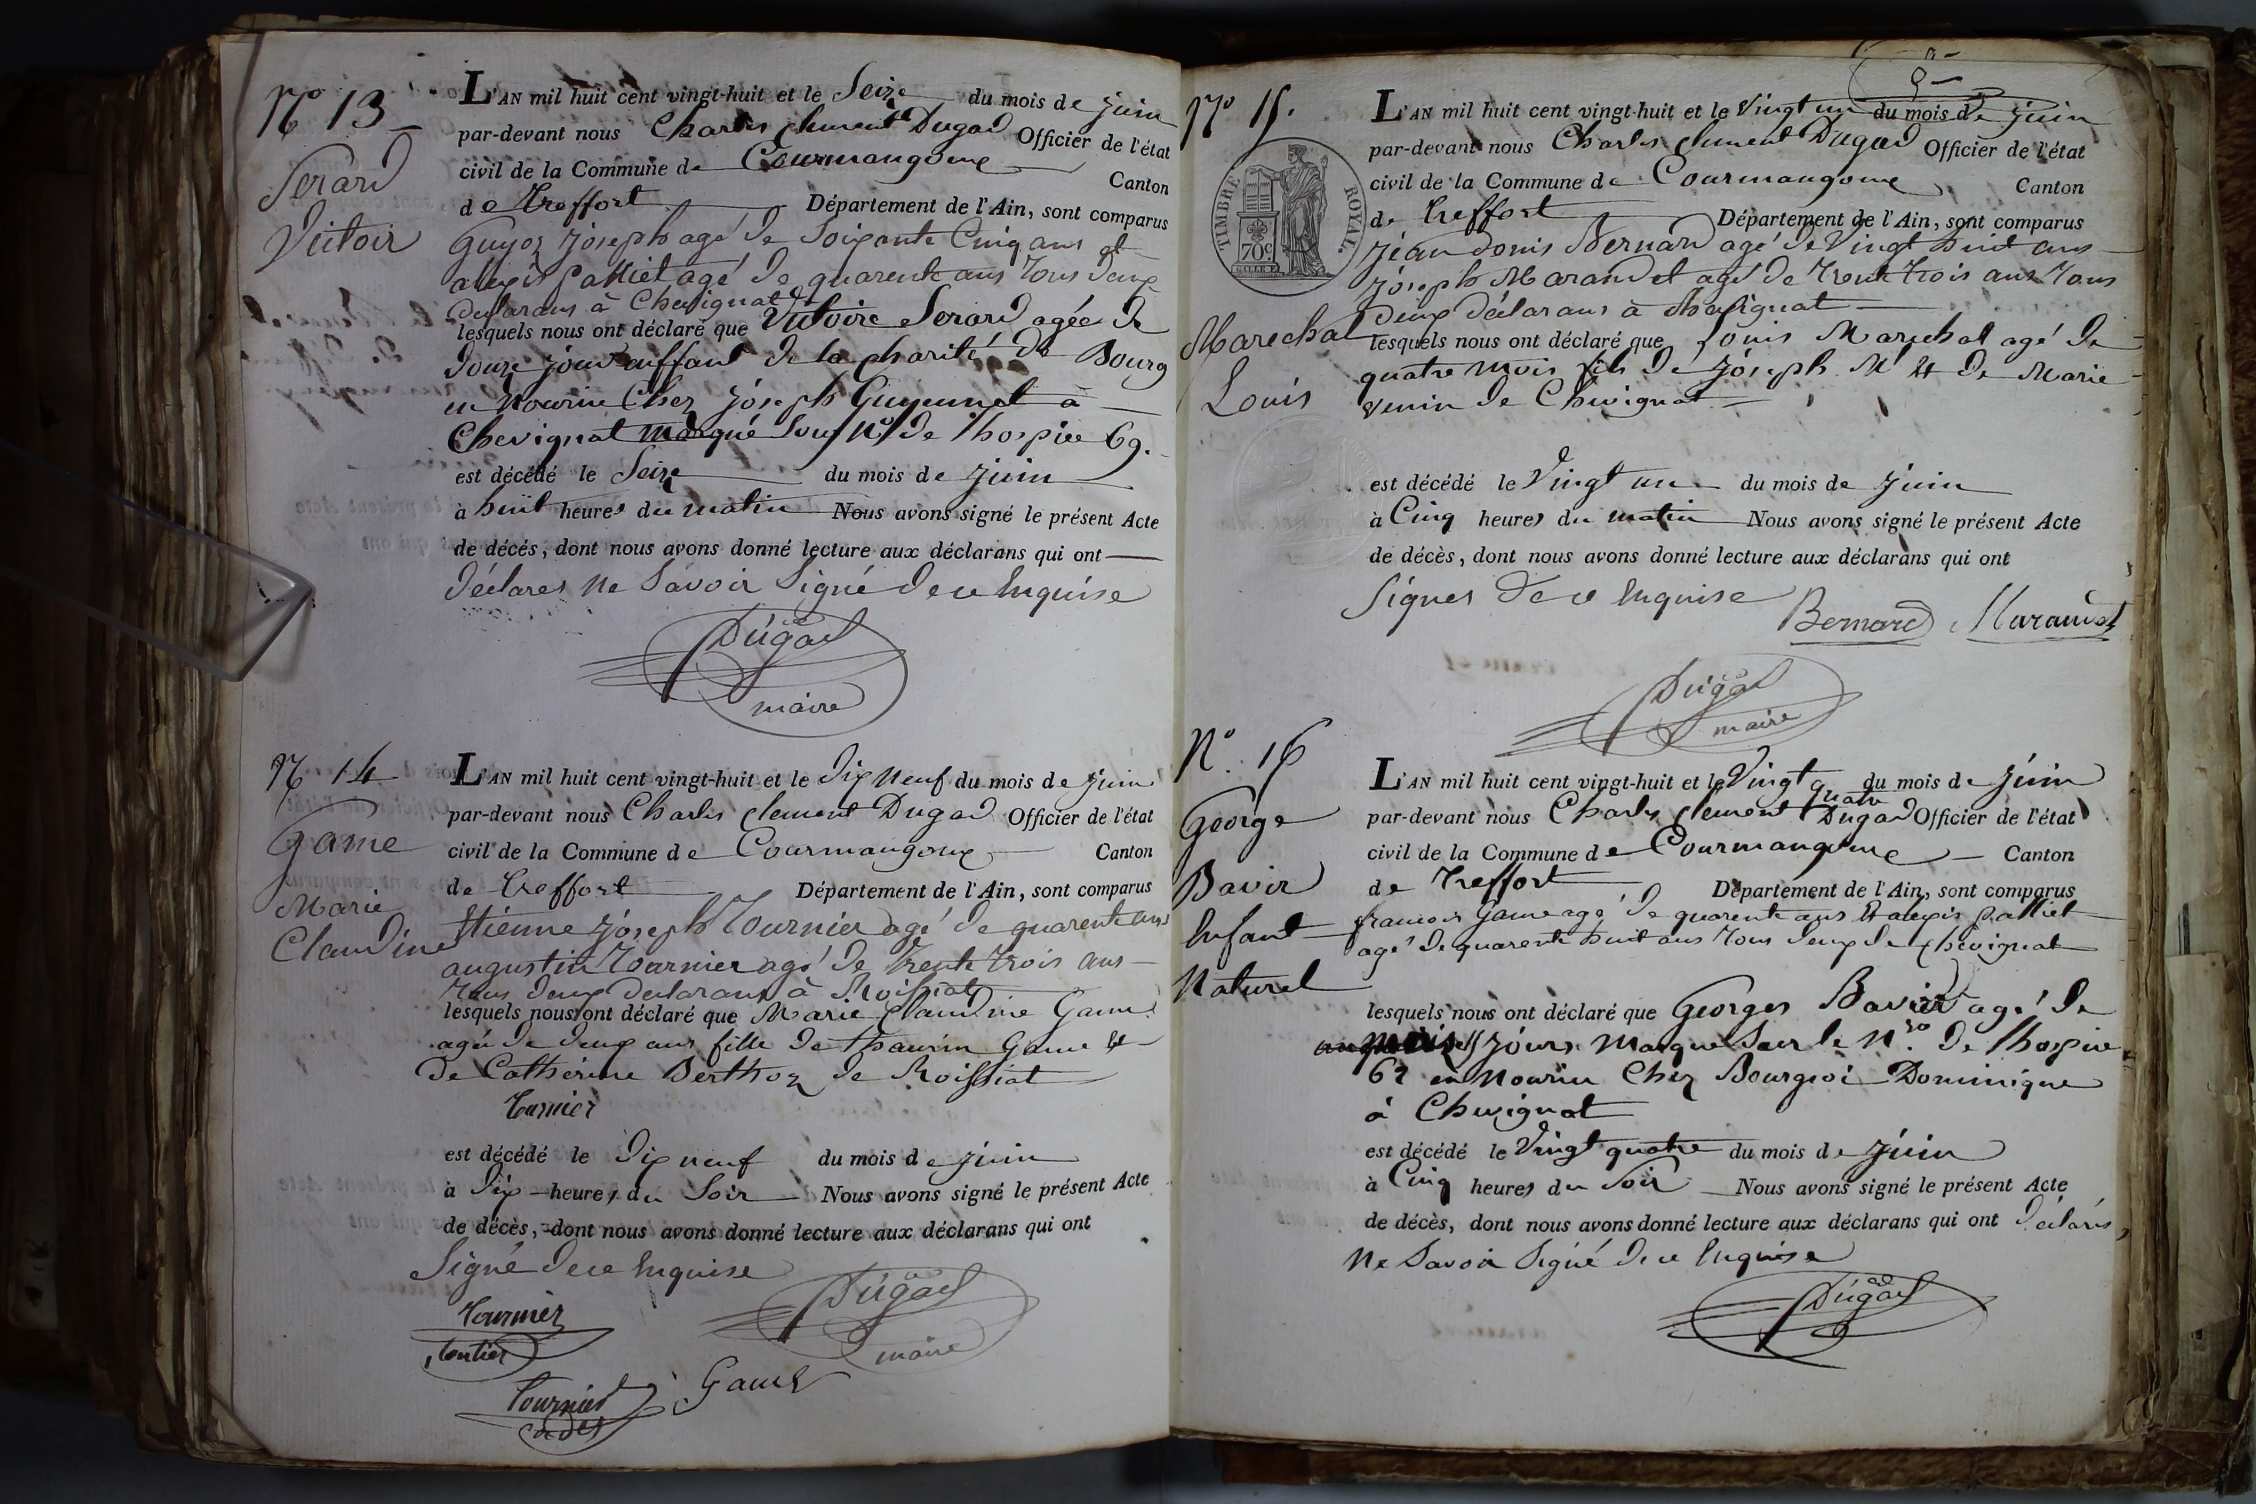 N° 13
Serard
Victoir
L'AN mil huit cent vingt-huit et le Seize du mois de juin
par-devant nous Charles Clement Dugad Officier de l'état
civil de la Commune de Courmangoux Canton
de Treffort Département de l'Ain, sont comparus
Guyoz joseph agé de Soixante Cinq ans et
alexis palliet agé de quarente ans Tous deux
declarans à Chevignat
lesquels nous ont déclaré que Victoire Serard agée de
douze jour enffant de la charité de Bourg
en Nourice Chez jóseph Guyennet à
Chevignat Marqué Sous N° de lhospice 69.
est décédé le Seize du mois de juin
à huit heures du matin Nous avons signé le présent Acte
de décés, dont nous avons donné lecture aux déclarans qui ont
déclares Ne Savoir Signé de ce Enquise
Dugad
maire
N° 14
Game
Marie
Claudine
L'AN mil huit cent vingt-huit et le dix Neuf du mois de juin
par-devant nous Charles Clement Dugad Officier de l'état
civil de la Commune de Courmangoux Canton
de Treffort Département de l'Ain, sont comparus
Etienne jóseph Tournier agé de quarente ans
augustin Tournier agé de trente trois ans
Tous deux declarans à Roissiat
lesquels nous ont déclaré que Marie Claudine Game
agée de deux ans fille de thaurin Game Et
de Cathérine Berthoz de Roissiat
est décédé le dix neuf du mois de juin
à dix heures du Soir Nous avons signé le présent Acte
de décès, dont nous avons donné lecture aux déclarans qui ont
Signé de ce Enquise
Tournier
Dugad
maire
Tournier
Game
N° 15.
TIMBRE ROYAL.
70c.
Marechal
Louis
L'AN mil huit cent vingt-huit et le Vingt un du mois de juin
par-devant nous Charles Clement Dugad Officier de l'état
civil de la Commune de Courmangoux Canton
de Treffort Département de l'Ain, sont comparus
jéan Denis Bernard agé de Vingt huit ans
jóseph Marandet agé de Trente Trois ans Tous
deux déclarans a Chevignat
lesquels nous ont déclaré que Louis Marechal agé de
quatre mois fils de jóseph M Et de Marie
venin de Chevignat
est décédé le Vingt un du mois de juin
à Cinq heures du matin Nous avons signé le présent Acte
de décès, dont nous avons donné lecture aux déclarans qui ont
Signes de ce Enquise
Bernard Marandet
Dugad
maire
N° 16
George
Bavir
Enfant
Naturel
L'AN mil huit cent vingt-huit et le Vingt quatre du mois de juin
par-devant nous Charles Clement Dugad Officier de l'état
civil de la Commune de Courmangoux Canton
de Treffort Département de l'Ain, sont comparus
francois Game agé de quarente ans Et alexis palliet
agé de quarente huit ans Tous deux de Chevignat
lesquels nous ont déclaré que Georges Bavier agé de
jours Marque Sur le N.ro de lhospice
67 en Nourice Chez Bourgeoi Dominique
à Chevignat
est décédé le Vingt quatre du mois de juin
à Cinq heures du Soir Nous avons signé le présent Acte
de décès, dont nous avons donné lecture aux déclarans qui ont déclarés
Ne Savoir Signé de ce Enquise
Dugad